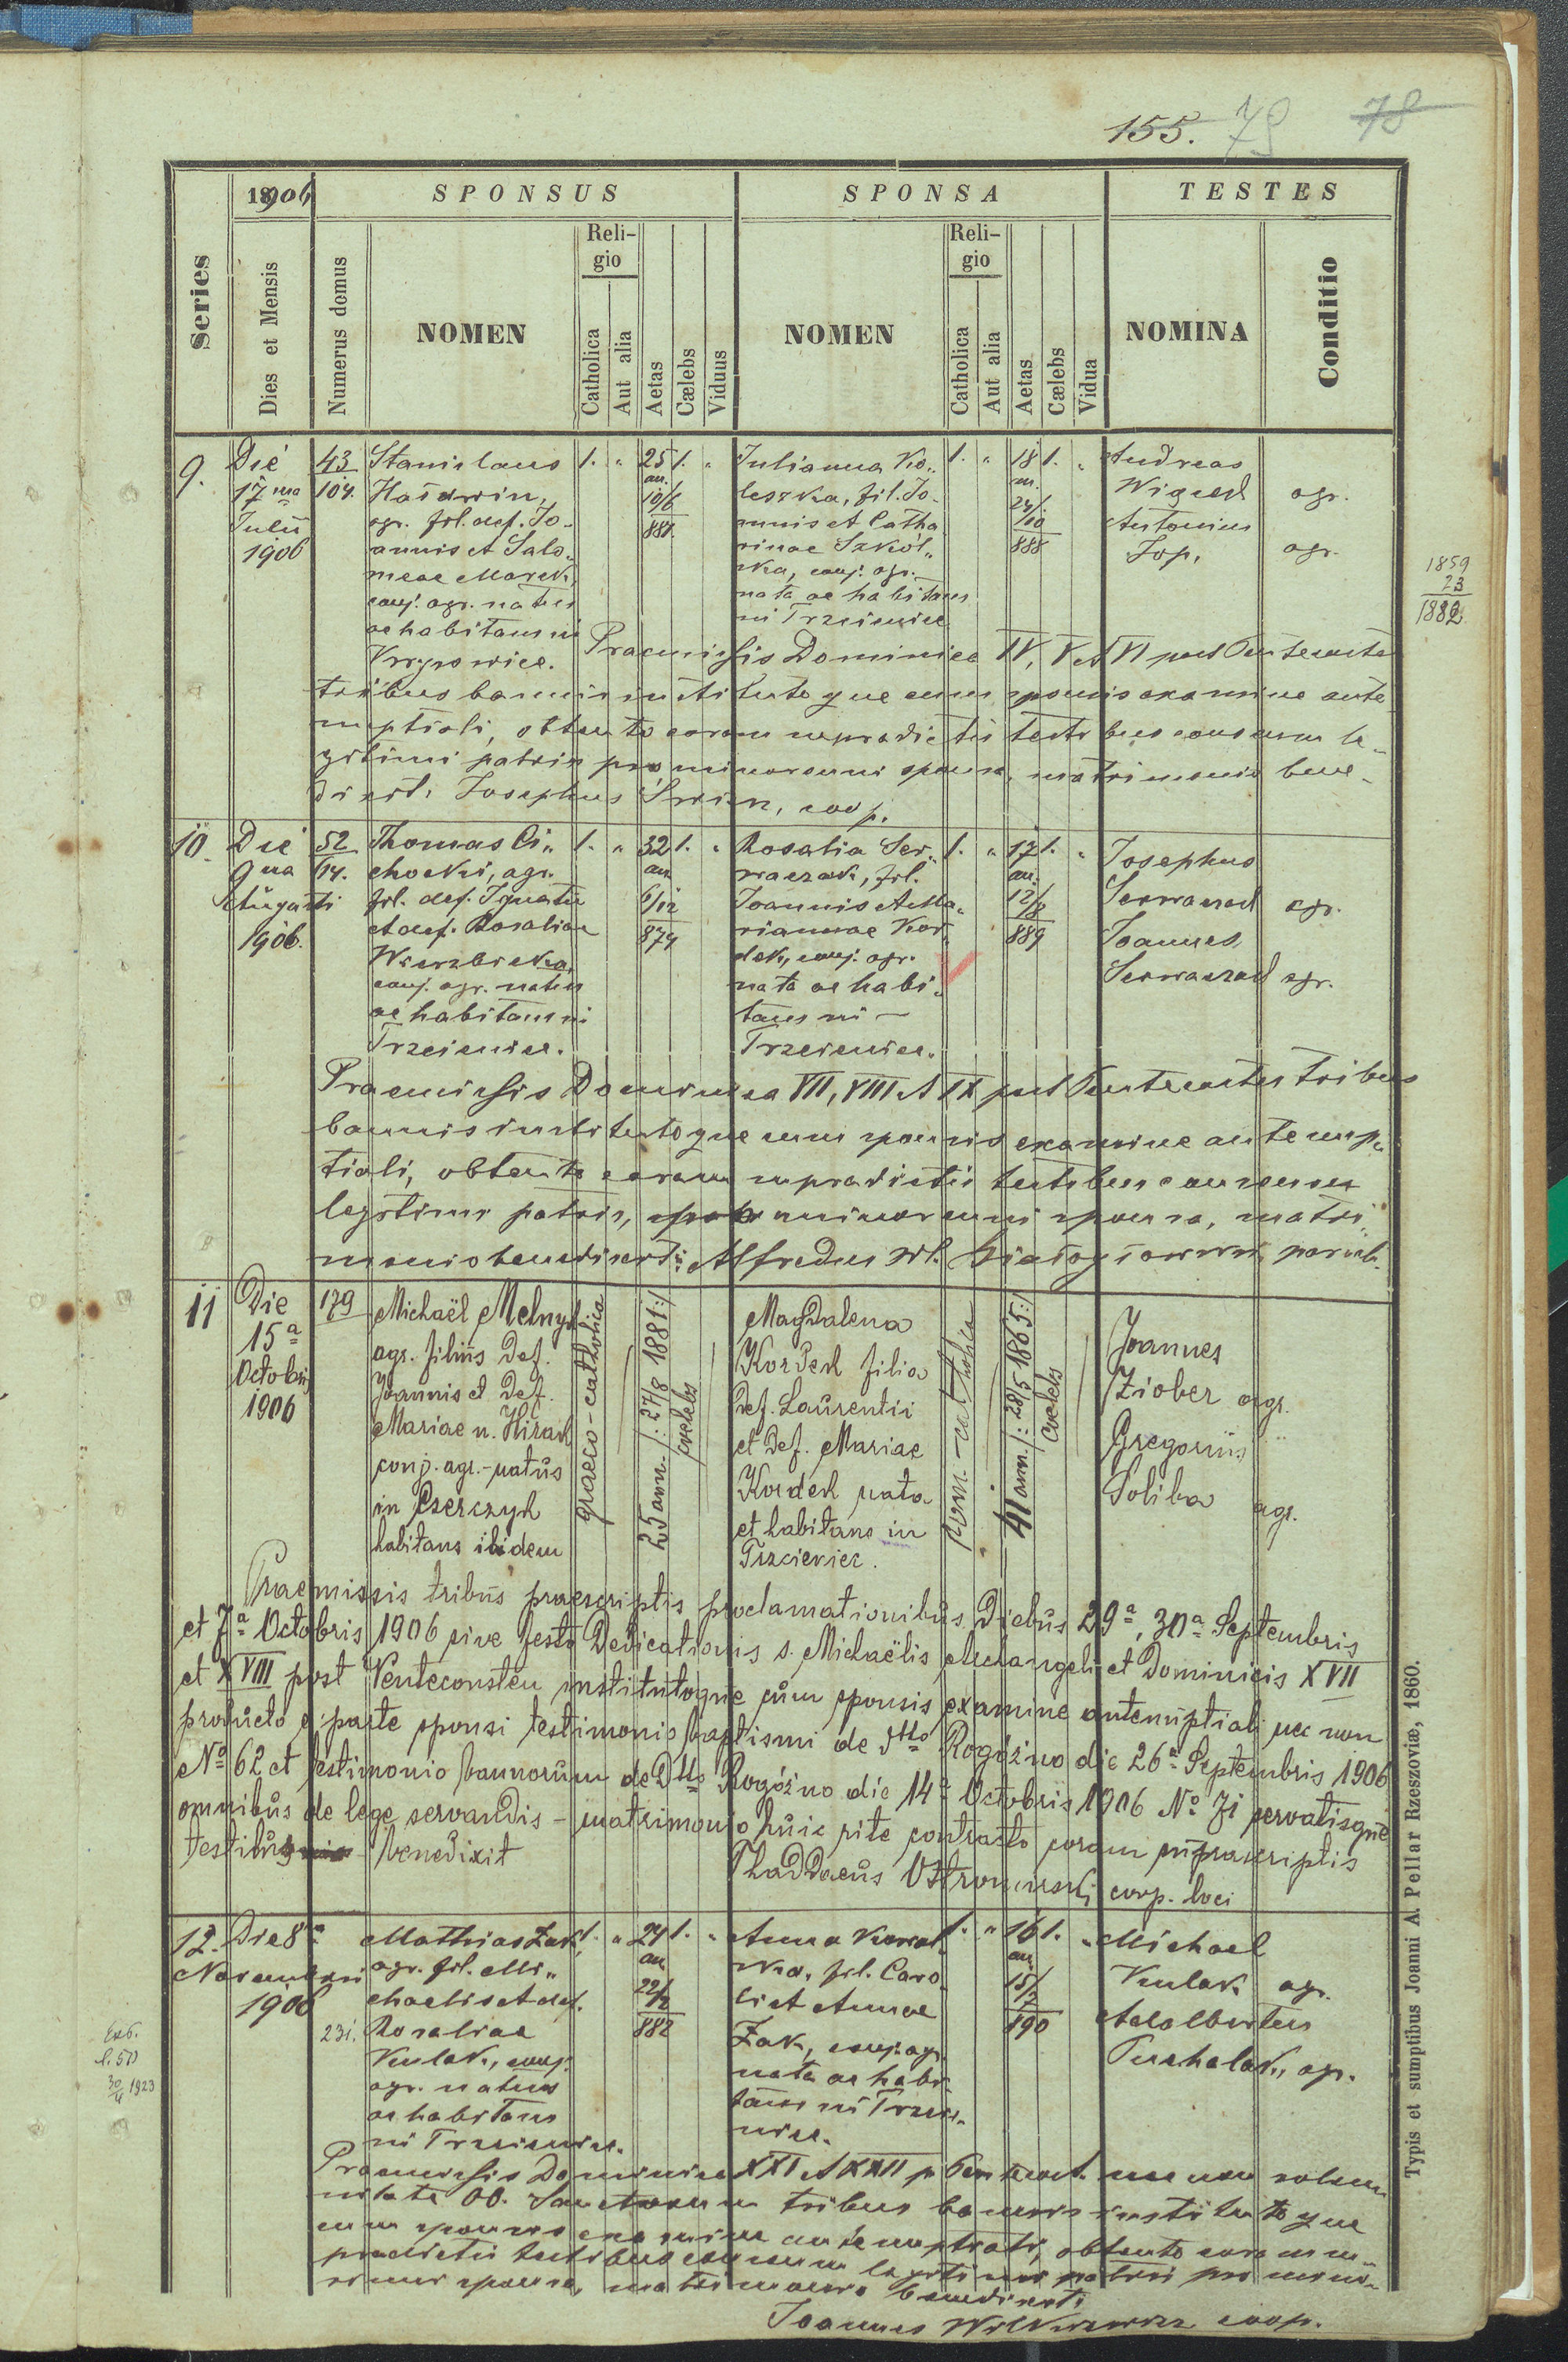 155. 79 78
1906
SPONSUS
SPONSA
TESTES
Series
Dies et Mensis
Numerus domus
NOMEN
Reli-
gio
Catholica
Aut alia
Aetas
Cælebs
Viduus
NOMEN
Reli-
gio
Catholica
Aut alia
Aetas
Cælebs
Vidua
NOMINA
Conditio
9.
Die
17ma
Julii
1906
43
104.
Stanislaus
agr. fil. def. Jo-
annis et Salo-
meae Marek,
conj. agr. natus
ac habitans in
1. " 25 1. "
an.
10/6
881.
Julianna Ko-
leszka, fil. Jo-
annis et Catha
rinae Szkól-
ska, conj. agr.
nata ac habitans
in Trzcienice
1. " 18 1. "
an.
24/10
888
Andreas
agr.
Antonius
Zop, agr.
1859
23
1882
Praemissis Dominica IV, V et VI post Pentecoste
tribus bannis institutoque cum sponsis examine ante
nuptiali, obtento coram supradictis testibus consensu le-
gitimi patris pro minorenni sponsa, matrimonio bene-
dixit: Josephus coop.
10.
Die
9na
Augusti
1906.
52
14.
Thomas Ci-
chocki, agr.
fil. def. Ignatii
et def. Rosaliae
Wierzbicka,
conj. agr. natus
ac habitans in
Trzcienice.
1. " 32 1. "
an
6/12
874
Rosalia Ser-
waczak, fil.
Joannis et Ma-
riannae Kor-
dek, conj. agr.
nata ac habi-
tans in
Trzcienice.
1. " 17 1. "
an.
12/8
889
Josephus
agr.
Joannes
agr.
Praemissis Dominica VII, VIII et IX post Pentecostes tribus
bannis institutoque cum sponsis examine antenup-
tiali, obtento coram supradictis testibus consensu
legitimi patris, minorenni sponsa, matri-
monio benedixit: Alfredus paroch.
11
Die
15a
Octobris
1906
179
Michaël Melnyk
agr. filius def.
Joannis et def.
Mariae n. Hirak
conj. agr. - natus
in Czerczyk
habitans ibidem
graeco-catholica
25 ann. /: 27/8 1881:/
coelebs
Magdalena
Kordek filia
def. Laurentii
et def. Mariae
Kordek nata
et habitans in
Trzcieniec.
rom.-catholica
41 ann. /: 28/5 1865:/
coelebs
Joannes
Ziober agr.
Gregorius
Soliba agr.
Praemissis tribus praescriptis proclamationibus diebus 29a, 30a Septembris
et 7a Octobris 1906 sive festo Dedicationis s. Michaëlis Archangeli et Dominicis XVII
et XVIII post Penteconsten institutoque cum sponsis examine antenuptiali nec non
producto e parte sponsi testimonio baptismi de dtto Rogóźno die 26a Septembris 1906
No 62 et testimonio bannorum de dtto Rogóźno die 14a Octobris 1906 No 71 servatisque
omnibus de lege servandis - matrimonio huic rite contracto coram suprascriptis
testibus benedixit
Thaddaeus coop. loci
12.
Die 8a
Novembris
1906
231.
Mathias Żak,
agr. fil. Mi-
chaelis et def.
Rosaliae
Kulak, conj.
agr. natus
ac habitans
in Trzcienice.
1. " 24 1. "
an
22/2
882
Anna Kowal-
ska, fil. Caro
li et Annae
Żak, conj. agr.
nata ac habi-
tans in Trzcie-
nice.
1. " 16 1. "
an
15/7
890
Michael
Kulak agr.
Adalbertus
Puchalak, agr.
1923
Praemissis Dominica XXI et XXII p. Pentecost. nec non solem-
nitate OO. Sanctorum tribus bannis institutoque
cum sponsis examine antenuptiali, obtento coram su-
pradictis testibus consensu legitimi patris pro mino-
renni sponsa, matrimonio benedixit:
Joannes coop.
Typis et sumptibus Joanni A. Pellar Rzeszoviæ, 1860.